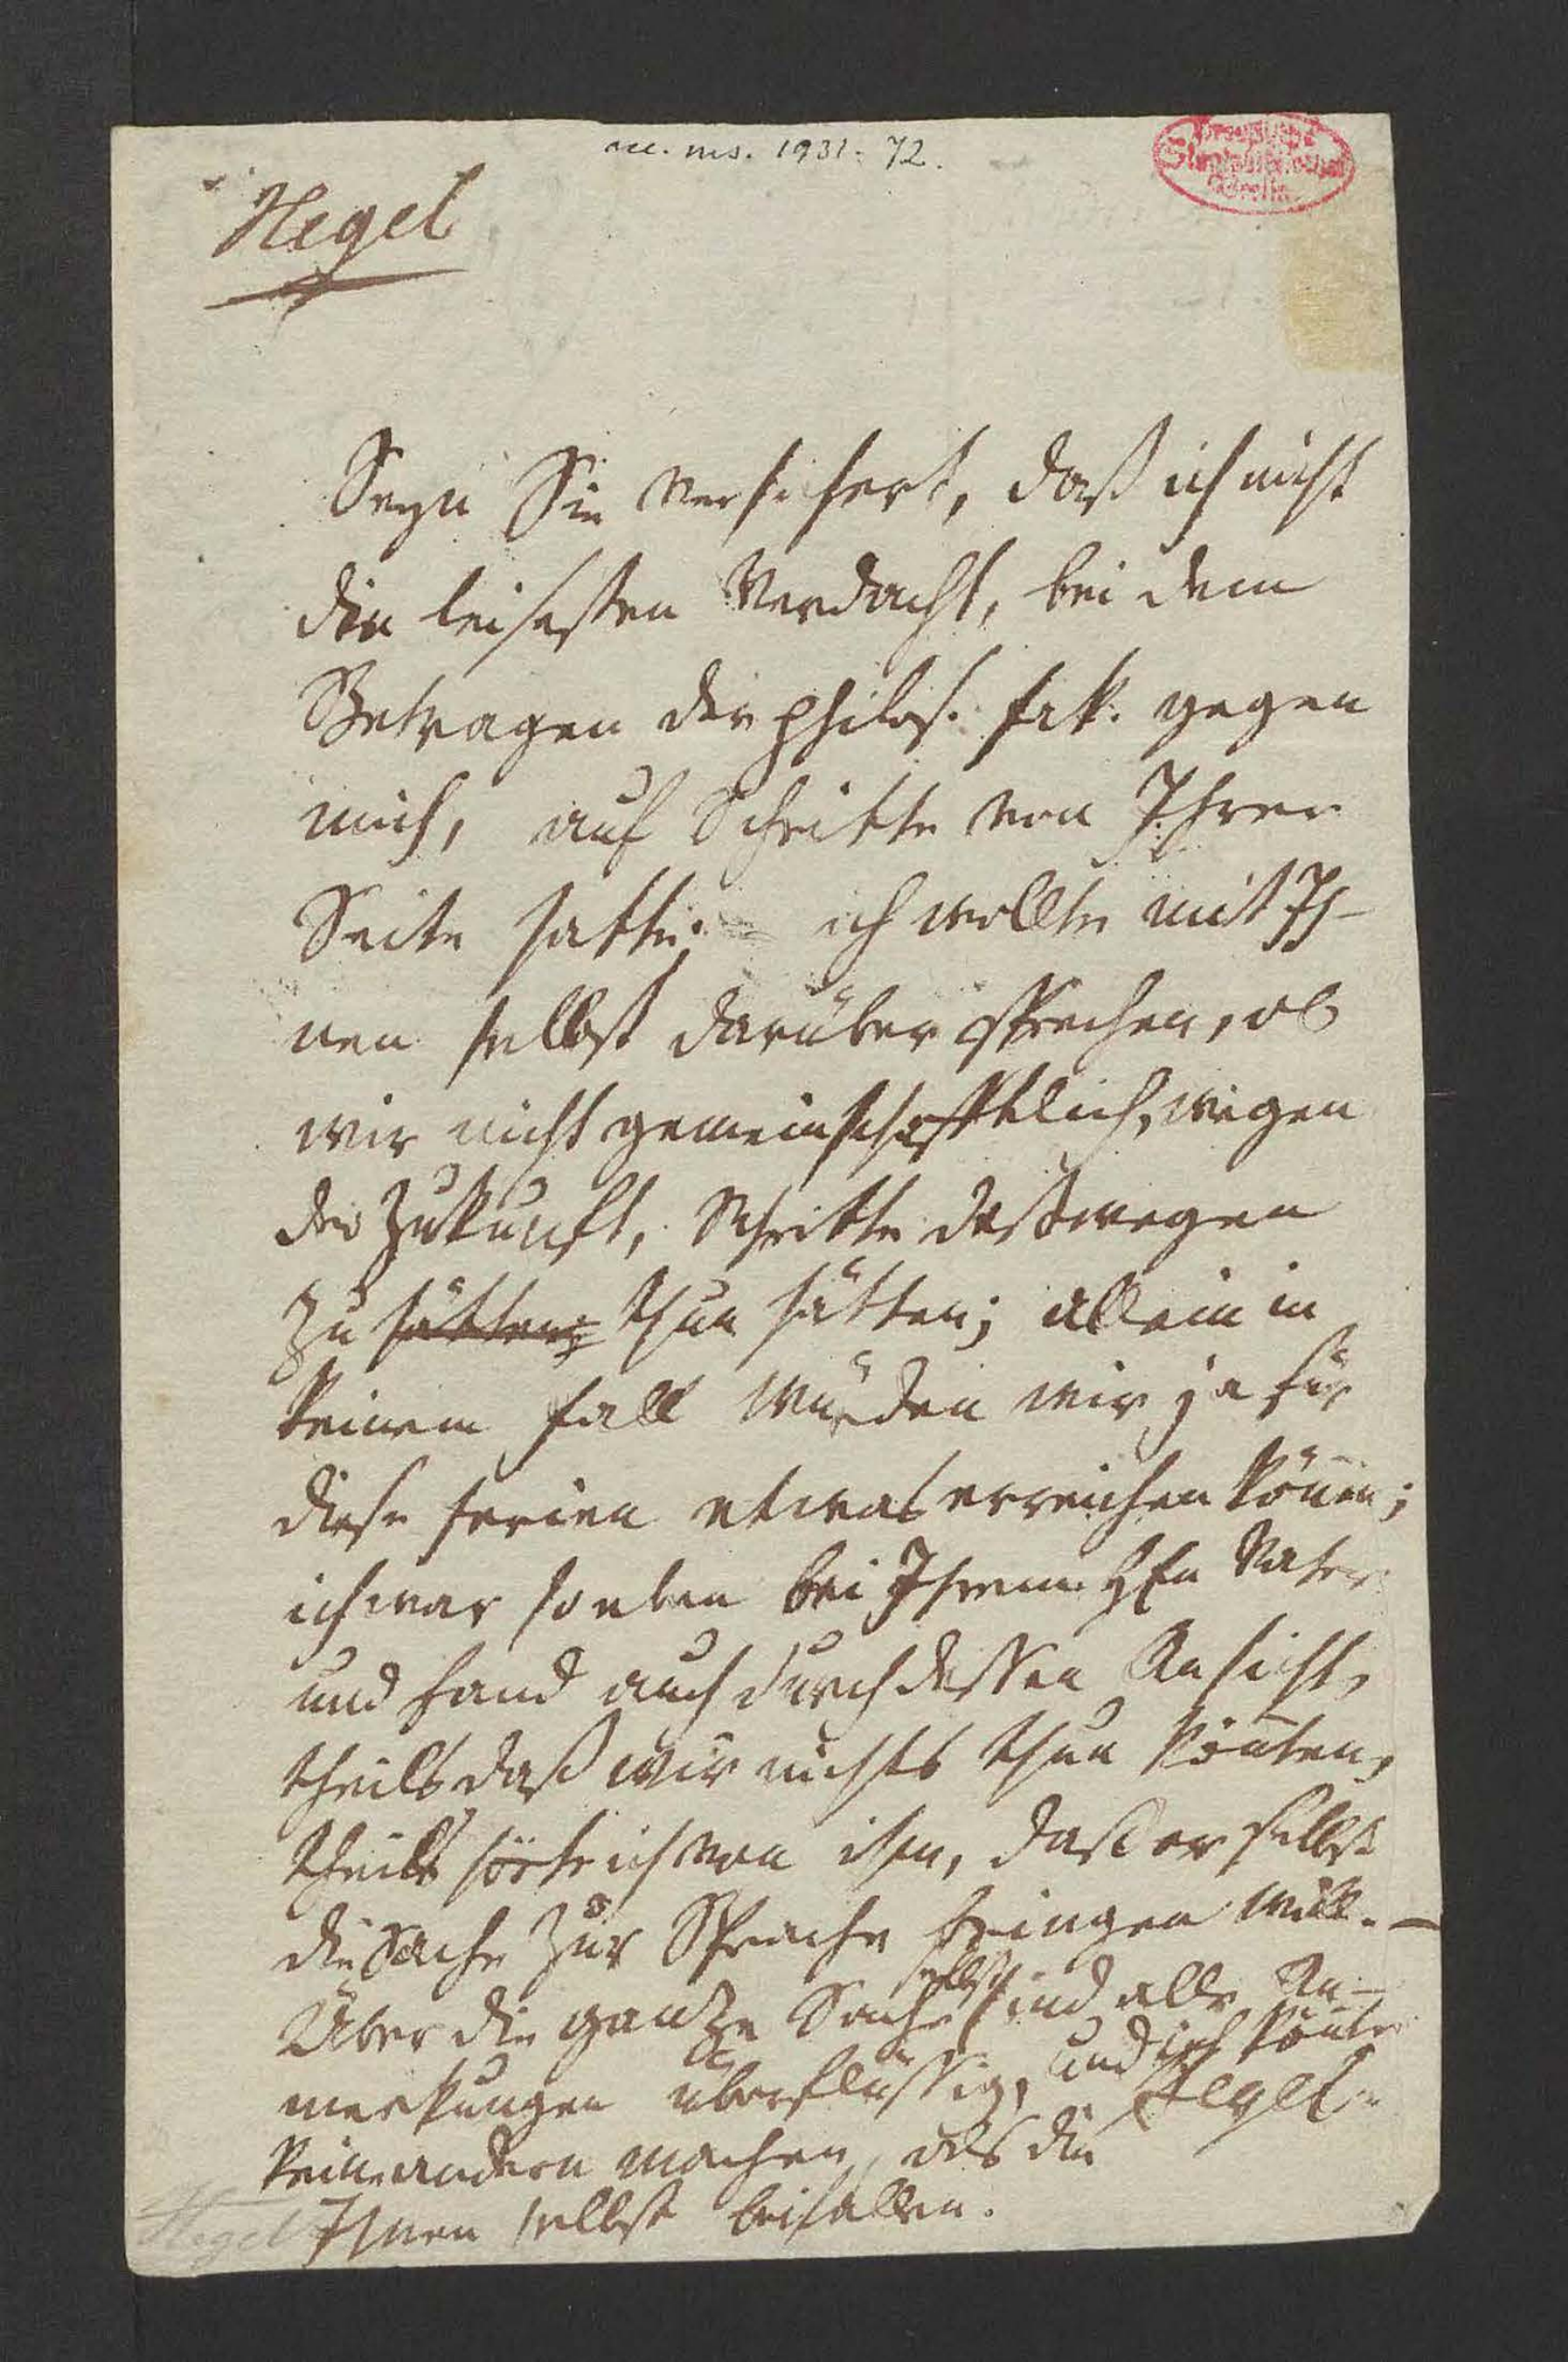 acc. ms. 1931. 72.
Preussische
Staatsbibliothek
Berlin
Hegel
Seyn Sie versichert, daß ich nicht
den leisesten Verdacht, bei dem
Betragen der philos. Fak. gegen
mich, auf Schritte von Ihrer
Seite hatte; – ich wollte mit Ih-
nen selbst darüber sprechen, ob
wir nicht gemeinschafftlich, wegen
der Zukunft, Schritte deßwegen
zu hätten; thun hätten; allein in
keinem Fall würden wir ja für
diese Ferien etwas erreichen könen;
ich war so eben bei Ihrem Hℓn Vater
und fand auch durch dessen Ansicht,
theils daß wir nichts thun könten,
theils hörte ich von ihm, daß er selbst
die Sache zur Sprache bringen will. –
Über die ganze Sache selbst sind alle An-
merkungen überflüssig, und ich könte
keine andern machen, als die
Ihnen selbst beifallen.
Hegel.
Hegel